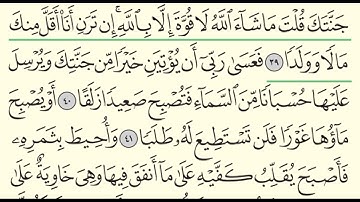 جَنَّتَكَ قُلْتَ مَا شَآءَ ٱللَّهُ لَا قُوَّةَ إِلَّا بِٱللَّهِ ۚ إِن تَرَنِ أَنَا۠ أَقَلَّ مِنكَ
مَالًا وَوَلَدًا ٣٩ فَعَسَىٰ رَبِّىٓ أَن يُؤْتِيَنِ خَيْرًا مِّن جَنَّتِكَ وَيُرْسِلَ
عَلَيْهَا حُسْبَانًا مِّنَ ٱلسَّمَآءِ فَتُصْبِحَ صَعِيدًا زَلَقًا ٤٠ أَوْ يُصْبِحَ
مَآؤُهَا غَوْرًا فَلَن تَسْتَطِيعَ لَهُۥ طَلَبًا ٤١ وَأُحِيطَ بِثَمَرِهِۦ
فَأَصْبَحَ يُقَلِّبُ كَفَّيْهِ عَلَىٰ مَآ أَنفَقَ فِيهَا وَهِىَ خَاوِيَةٌ عَلَىٰ